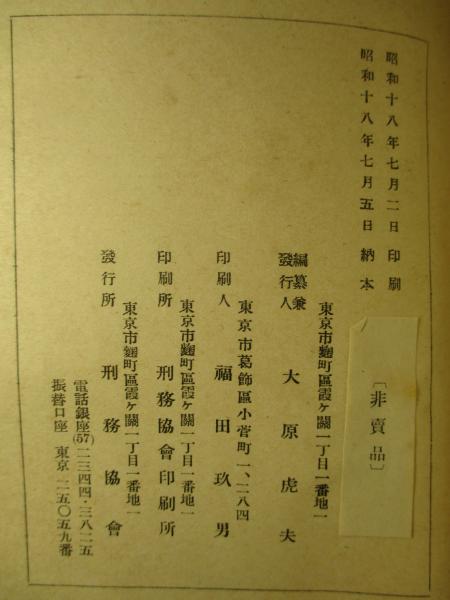 昭和十八年七月二日印刷
昭和十八年七月五日納本
〔非賣品〕
東京市麴町區霞ヶ關一丁目一番地一
編纂兼
發行人 大原虎夫
東京市葛飾區小菅町一、二八四
印刷人 福田玖男
東京市麴町區霞ヶ關一丁目一番地一
印刷所 刑務協會印刷所
東京市麴町區霞ヶ關一丁目一番地一
發行所 刑務協會
電話銀座(57)二三四四・三八二五
振替口座 東京 二五〇五九番